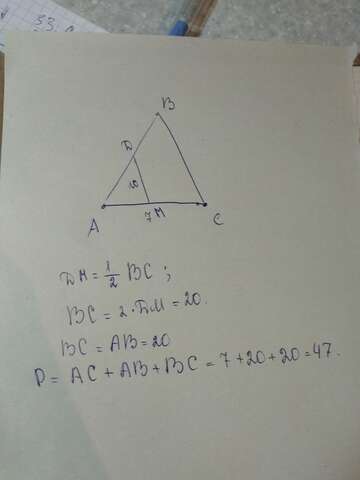 33.
B
Д
10
A
7 M
C
ДM = 1/2 BC ;
BC = 2·БM = 20.
BC = AB = 20
P = AC + AB + BC = 7 + 20 + 20 = 47.